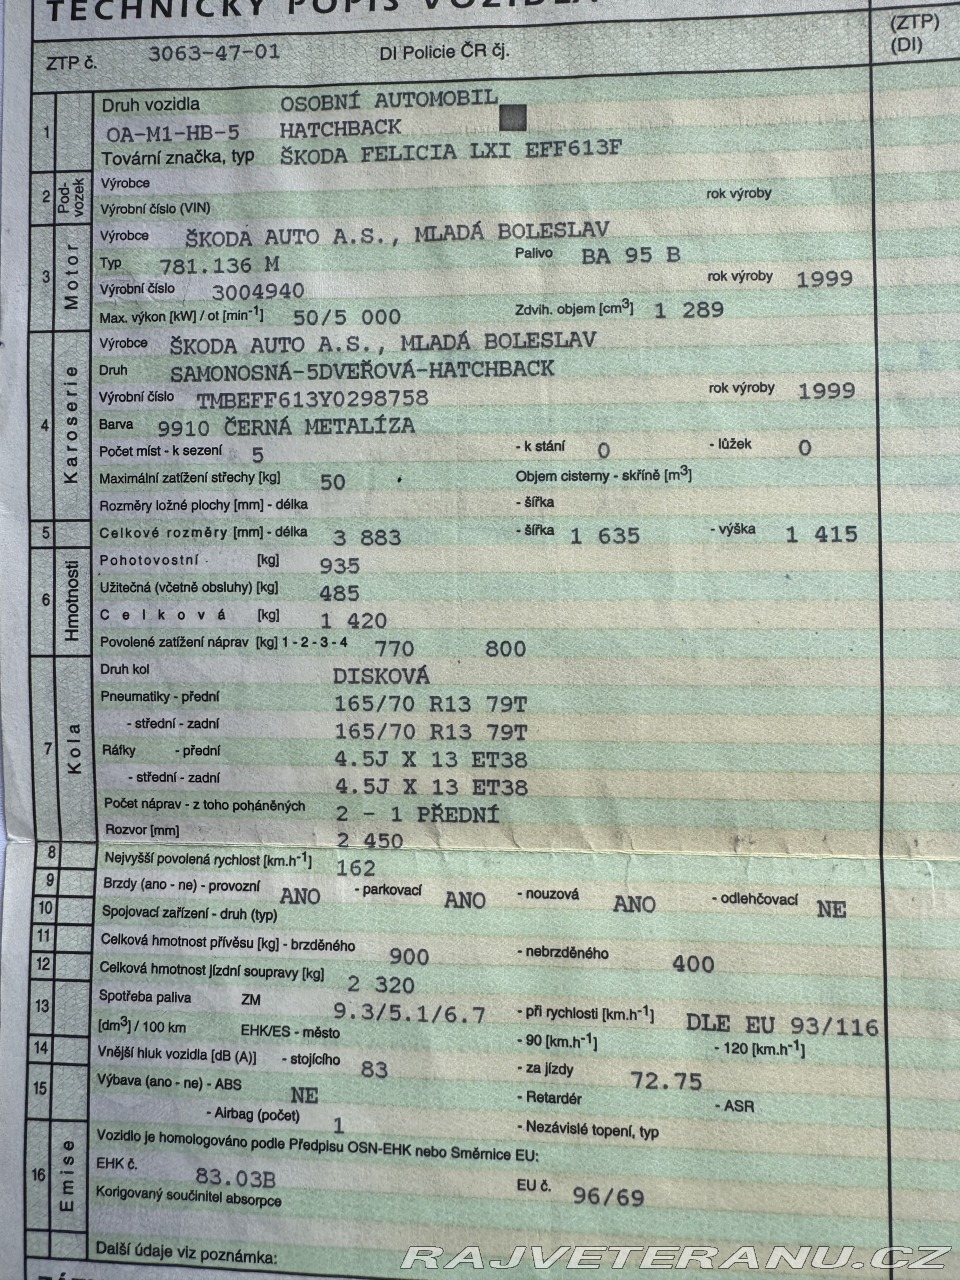 TECHNICKÝ POPIS VOZIDLA
(ZTP)
(DI)
ZTP č. 3063-47-01 DI Policie ČR čj.
1 Druh vozidla OSOBNÍ AUTOMOBIL
OA-M1-HB-5 HATCHBACK
Tovární značka, typ ŠKODA FELICIA LXI EFF613F
2 Pod-vozek Výrobce
Výrobní číslo (VIN) rok výroby
3 Motor Výrobce ŠKODA AUTO A.S., MLADÁ BOLESLAV
Typ 781.136 M Palivo BA 95 B
Výrobní číslo 3004940 rok výroby 1999
Max. výkon [kW] / ot [min-1] 50/5 000 Zdvih. objem [cm3] 1 289
4 Karoserie Výrobce ŠKODA AUTO A.S., MLADÁ BOLESLAV
Druh SAMONOSNÁ-5DVEŘOVÁ-HATCHBACK
Výrobní číslo TMBEFF613Y0298758 rok výroby 1999
Barva 9910 ČERNÁ METALÍZA
Počet míst - k sezení 5 - k stání 0 - lůžek 0
Maximální zatížení střechy [kg] 50 Objem cisterny - skříně [m3]
Rozměry ložné plochy [mm] - délka - šířka
5 Celkové rozměry [mm] - délka 3 883 - šířka 1 635 - výška 1 415
6 Hmotnosti Pohotovostní [kg] 935
Užitečná (včetně obsluhy) [kg] 485
Celková [kg] 1 420
Povolené zatížení náprav [kg] 1 - 2 - 3 - 4 770 800
7 Kola Druh kol DISKOVÁ
Pneumatiky - přední 165/70 R13 79T
- střední - zadní 165/70 R13 79T
Ráfky - přední 4.5J X 13 ET38
- střední - zadní 4.5J X 13 ET38
Počet náprav - z toho poháněných 2 - 1 PŘEDNÍ
Rozvor [mm] 2 450
8 Nejvyšší povolená rychlost [km.h-1] 162
9 Brzdy (ano - ne) - provozní ANO - parkovací ANO - nouzová ANO - odlehčovací NE
10 Spojovací zařízení - druh (typ)
11 Celková hmotnost přívěsu [kg] - brzděného 900 - nebrzděného 400
12 Celková hmotnost jízdní soupravy [kg] 2 320
13 Spotřeba paliva ZM 9.3/5.1/6.7 - při rychlosti [km.h-1] DLE EU 93/116
[dm3] / 100 km EHK/ES - město - 90 [km.h-1] - 120 [km.h-1]
14 Vnější hluk vozidla [dB (A)] - stojícího 83 - za jízdy 72.75
15 Výbava (ano - ne) - ABS NE - Retardér - ASR
- Airbag (počet) 1 - Nezávislé topení, typ
16 Emise Vozidlo je homologováno podle Předpisu OSN-EHK nebo Směrnice EU:
EHK č. 83.03B EU č. 96/69
Korigovaný součinitel absorpce
Další údaje viz poznámka:
RAJVETERANU.CZ